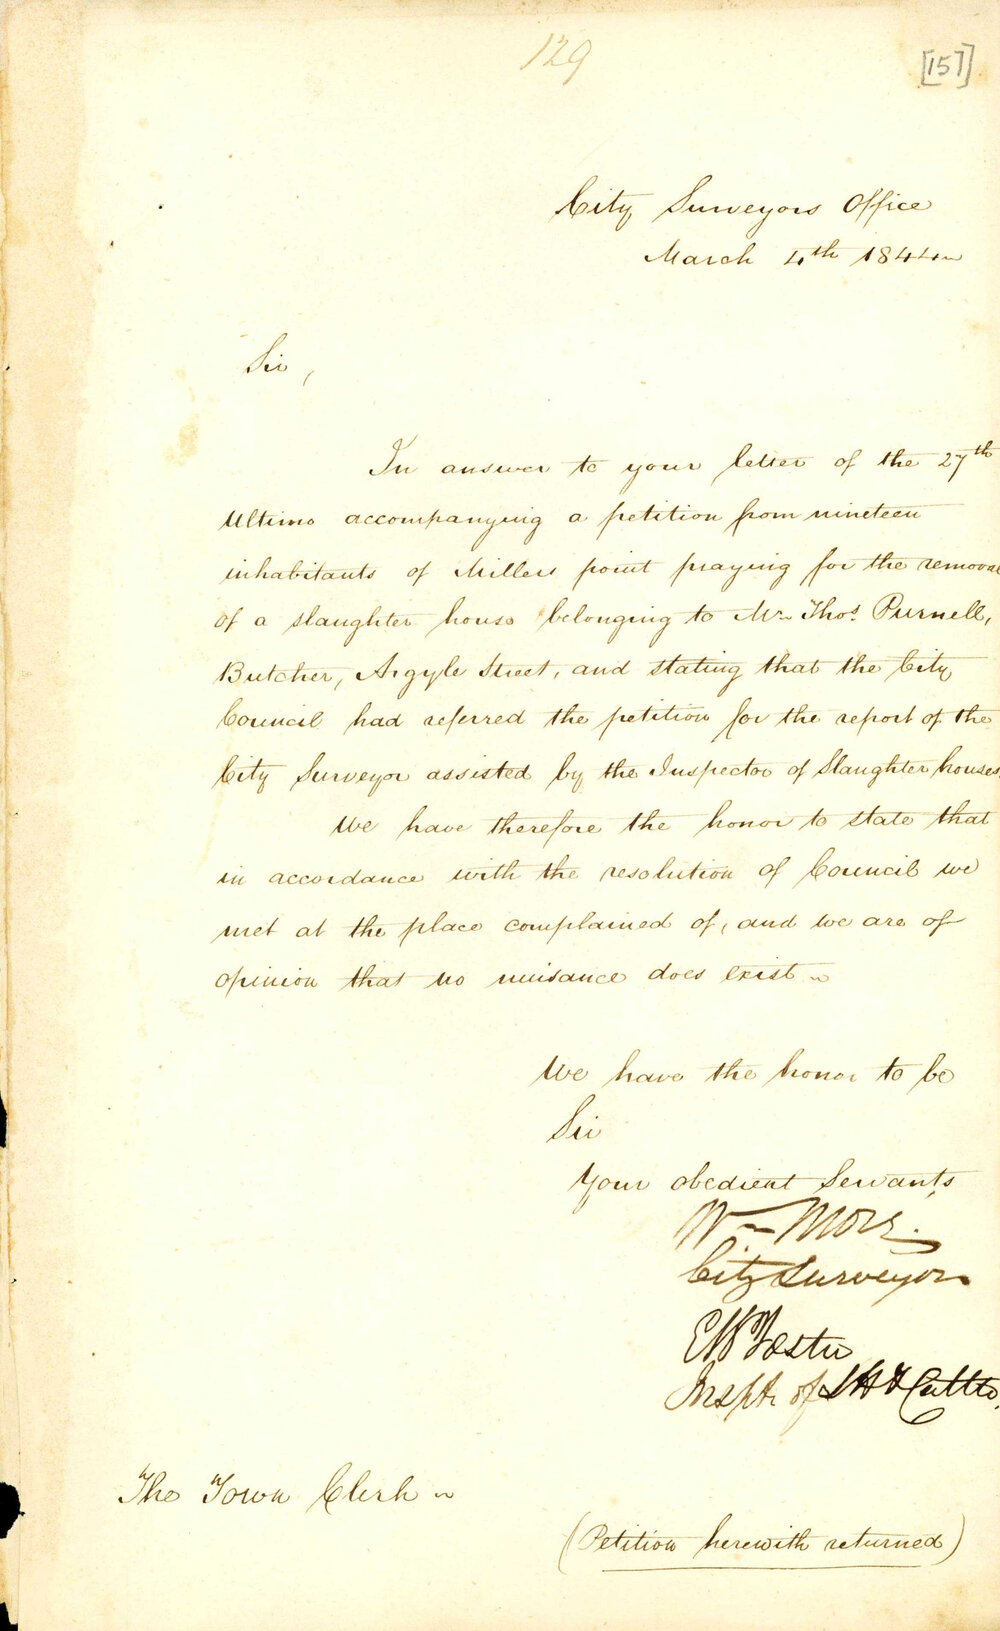 129
[157]
City Surveyors Office
March 4th 1844
Sir,
In answer to your letter of the 27th
Ultimo accompanying a petition from nineteen
inhabitants of Millers point praying for the removal
of a slaughter house belonging to Mr Thos. Purnell,
Butcher, Argyle Street, and stating that the City
Council had referred the petition for the report of the
City Surveyor assisted by the Inspector of Slaughter houses.
We have therefore the honor to state that
in accordance with the resolution of Council we
met at the place complained of, and we are of
opinion that no nuisance does exist
We have the honor to be
Sir
Your obedient Servants,
Wm
City Surveyor
Inspt. of S H & Cattle,
The Town Clerk
(Petition herewith returned)